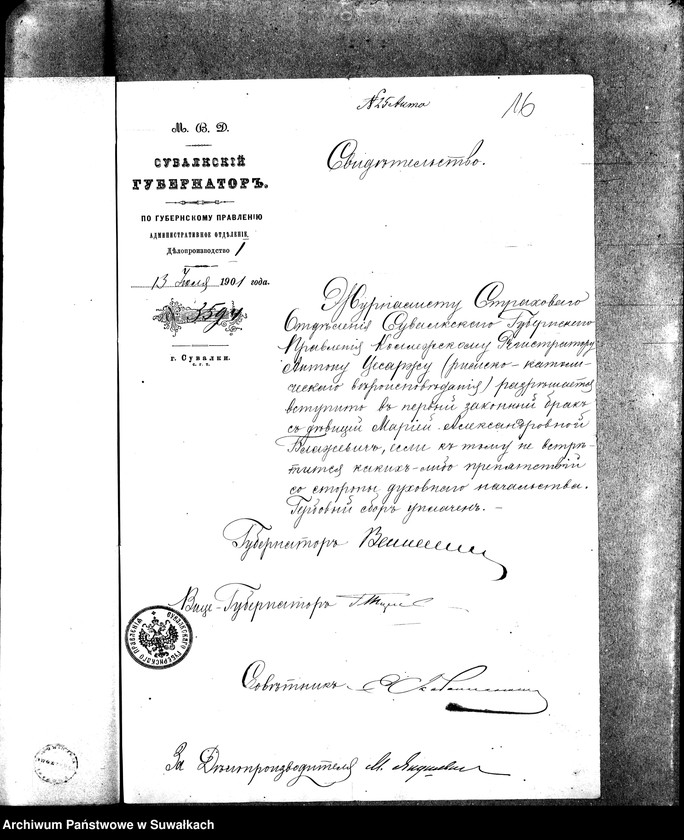 № 25 Акта
16
М. В. Д.
СУВАЛКСКІЙ
ГУБЕРНАТОРЪ.
ПО ГУБЕРНСКОМУ ПРАВЛЕНІЮ
АДМИНИСТРАТИВНОЕ ОТДѢЛЕНІЕ,
Дѣлопроизводство 1
13 Іюля 1901 года.
№ 3594
г. Сувалки.
Свидѣтельство.
Журналисту Страховаго
Отдѣленія Сувалкскаго Губернскаго
Правленія Коллежскому Регистратору
Антону (римско-католи-
ческаго вѣроисповѣданія) разрѣшается
вступить въ первый законный бракъ
съ дѣвицей Маріей Александровной
Блажевичъ, если къ тому не встрѣ-
тится какихъ-либо препятствій
со стороны духовнаго начальства.
Гербовый сборъ уплаченъ. –
Губернаторъ
Вице-Губернаторъ
СУВАЛКСКАГО ГУБЕРНСКАГО ПРАВЛЕНІЯ
Совѣтникъ
За Дѣлопроизводителя М.
Archiwum Państwowe w Suwałkach